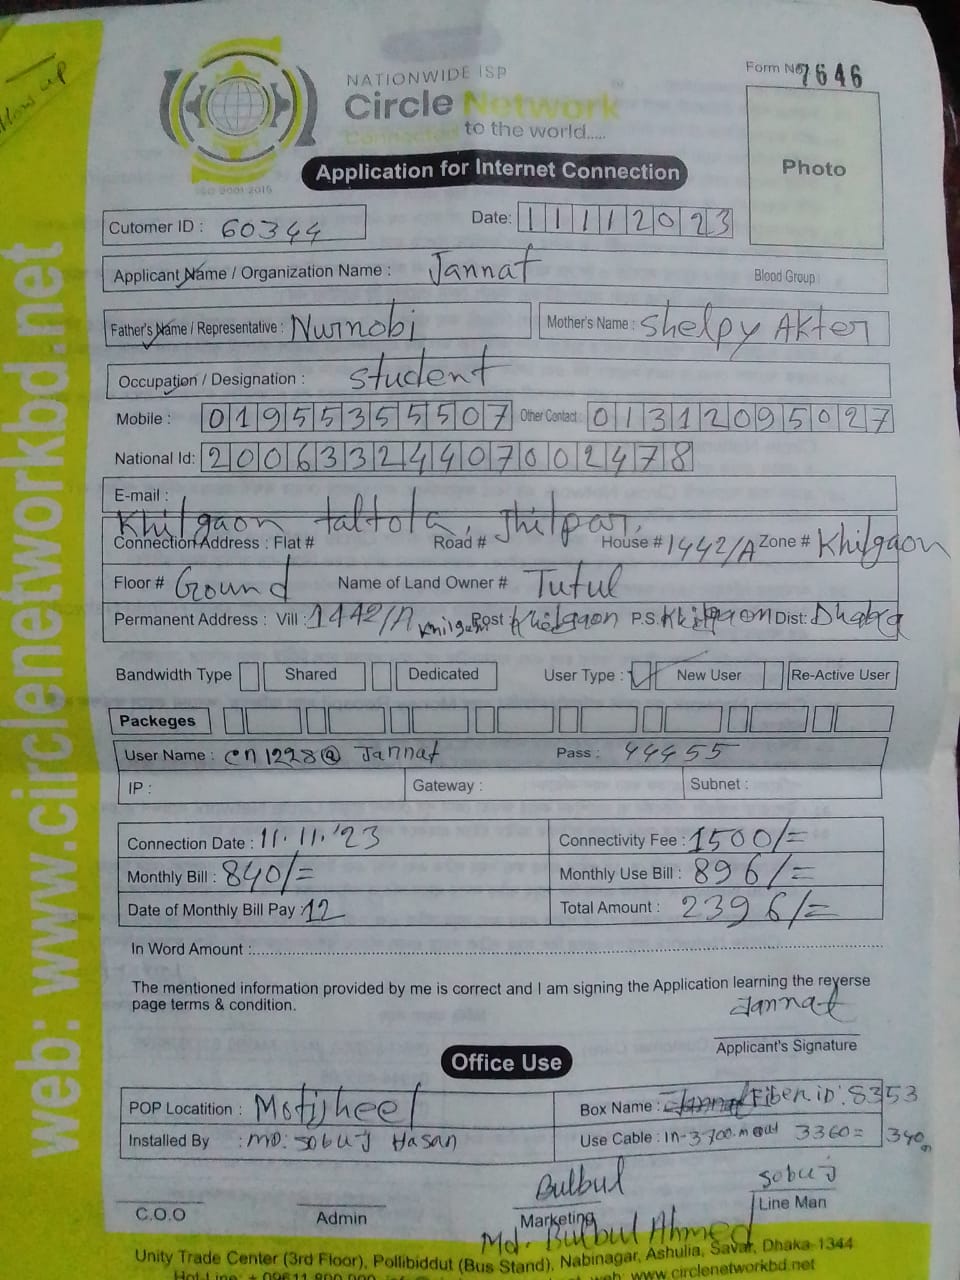 Form No 7646
NATIONWIDE ISP
Circle Network
Connected to the world.....
ISO 9001:2015
Application for Internet Connection
Photo
Cutomer ID : 60344
Date: 11112023
Applicant Name / Organization Name : Jannat Blood Group :
Father's Name / Representative : Nurnobi Mother's Name : Shelpy Akter
Occupation / Designation : Student
Mobile : 01955355507 Other Contact : 01312095027
National Id: 20063324407002478
E-mail :
Khilgaon taltola, Jhilpar,
Connection Address : Flat # Road # House # 1442/A Zone # Khilgaon
Floor # Ground Name of Land Owner # Tutul
Permanent Address : Vill : 1442/A Khilgaon Post : Khilgaon P.S. Khilgaon Dist: Dhaka
Bandwidth Type Shared Dedicated User Type : New User Re-Active User
Packeges
User Name : cn1228@ Jannat Pass : 44455
IP : Gateway : Subnet :
Connection Date : 11.11.'23 Connectivity Fee : 1500/=
Monthly Bill : 840/= Monthly Use Bill : 896/=
Date of Monthly Bill Pay : 12 Total Amount : 2396/=
In Word Amount :
The mentioned information provided by me is correct and I am signing the Application learning the reverse
page terms & condition.
Jannat
Applicant's Signature
Office Use
POP Locatition : Motijheel Box Name : Fiber iD: 8353
Installed By : MD: Sobuj Hasan Use Cable : in-3700 m out 3360= 340m
Bulbul Sobuj
C.O.O Admin Marketing Line Man
Md. Bulbul Ahmed
Unity Trade Center (3rd Floor), Pollibiddut (Bus Stand), Nabinagar, Ashulia, Savar, Dhaka-1344
web: www.circlenetworkbd.net
web: www.circlenetworkbd.net